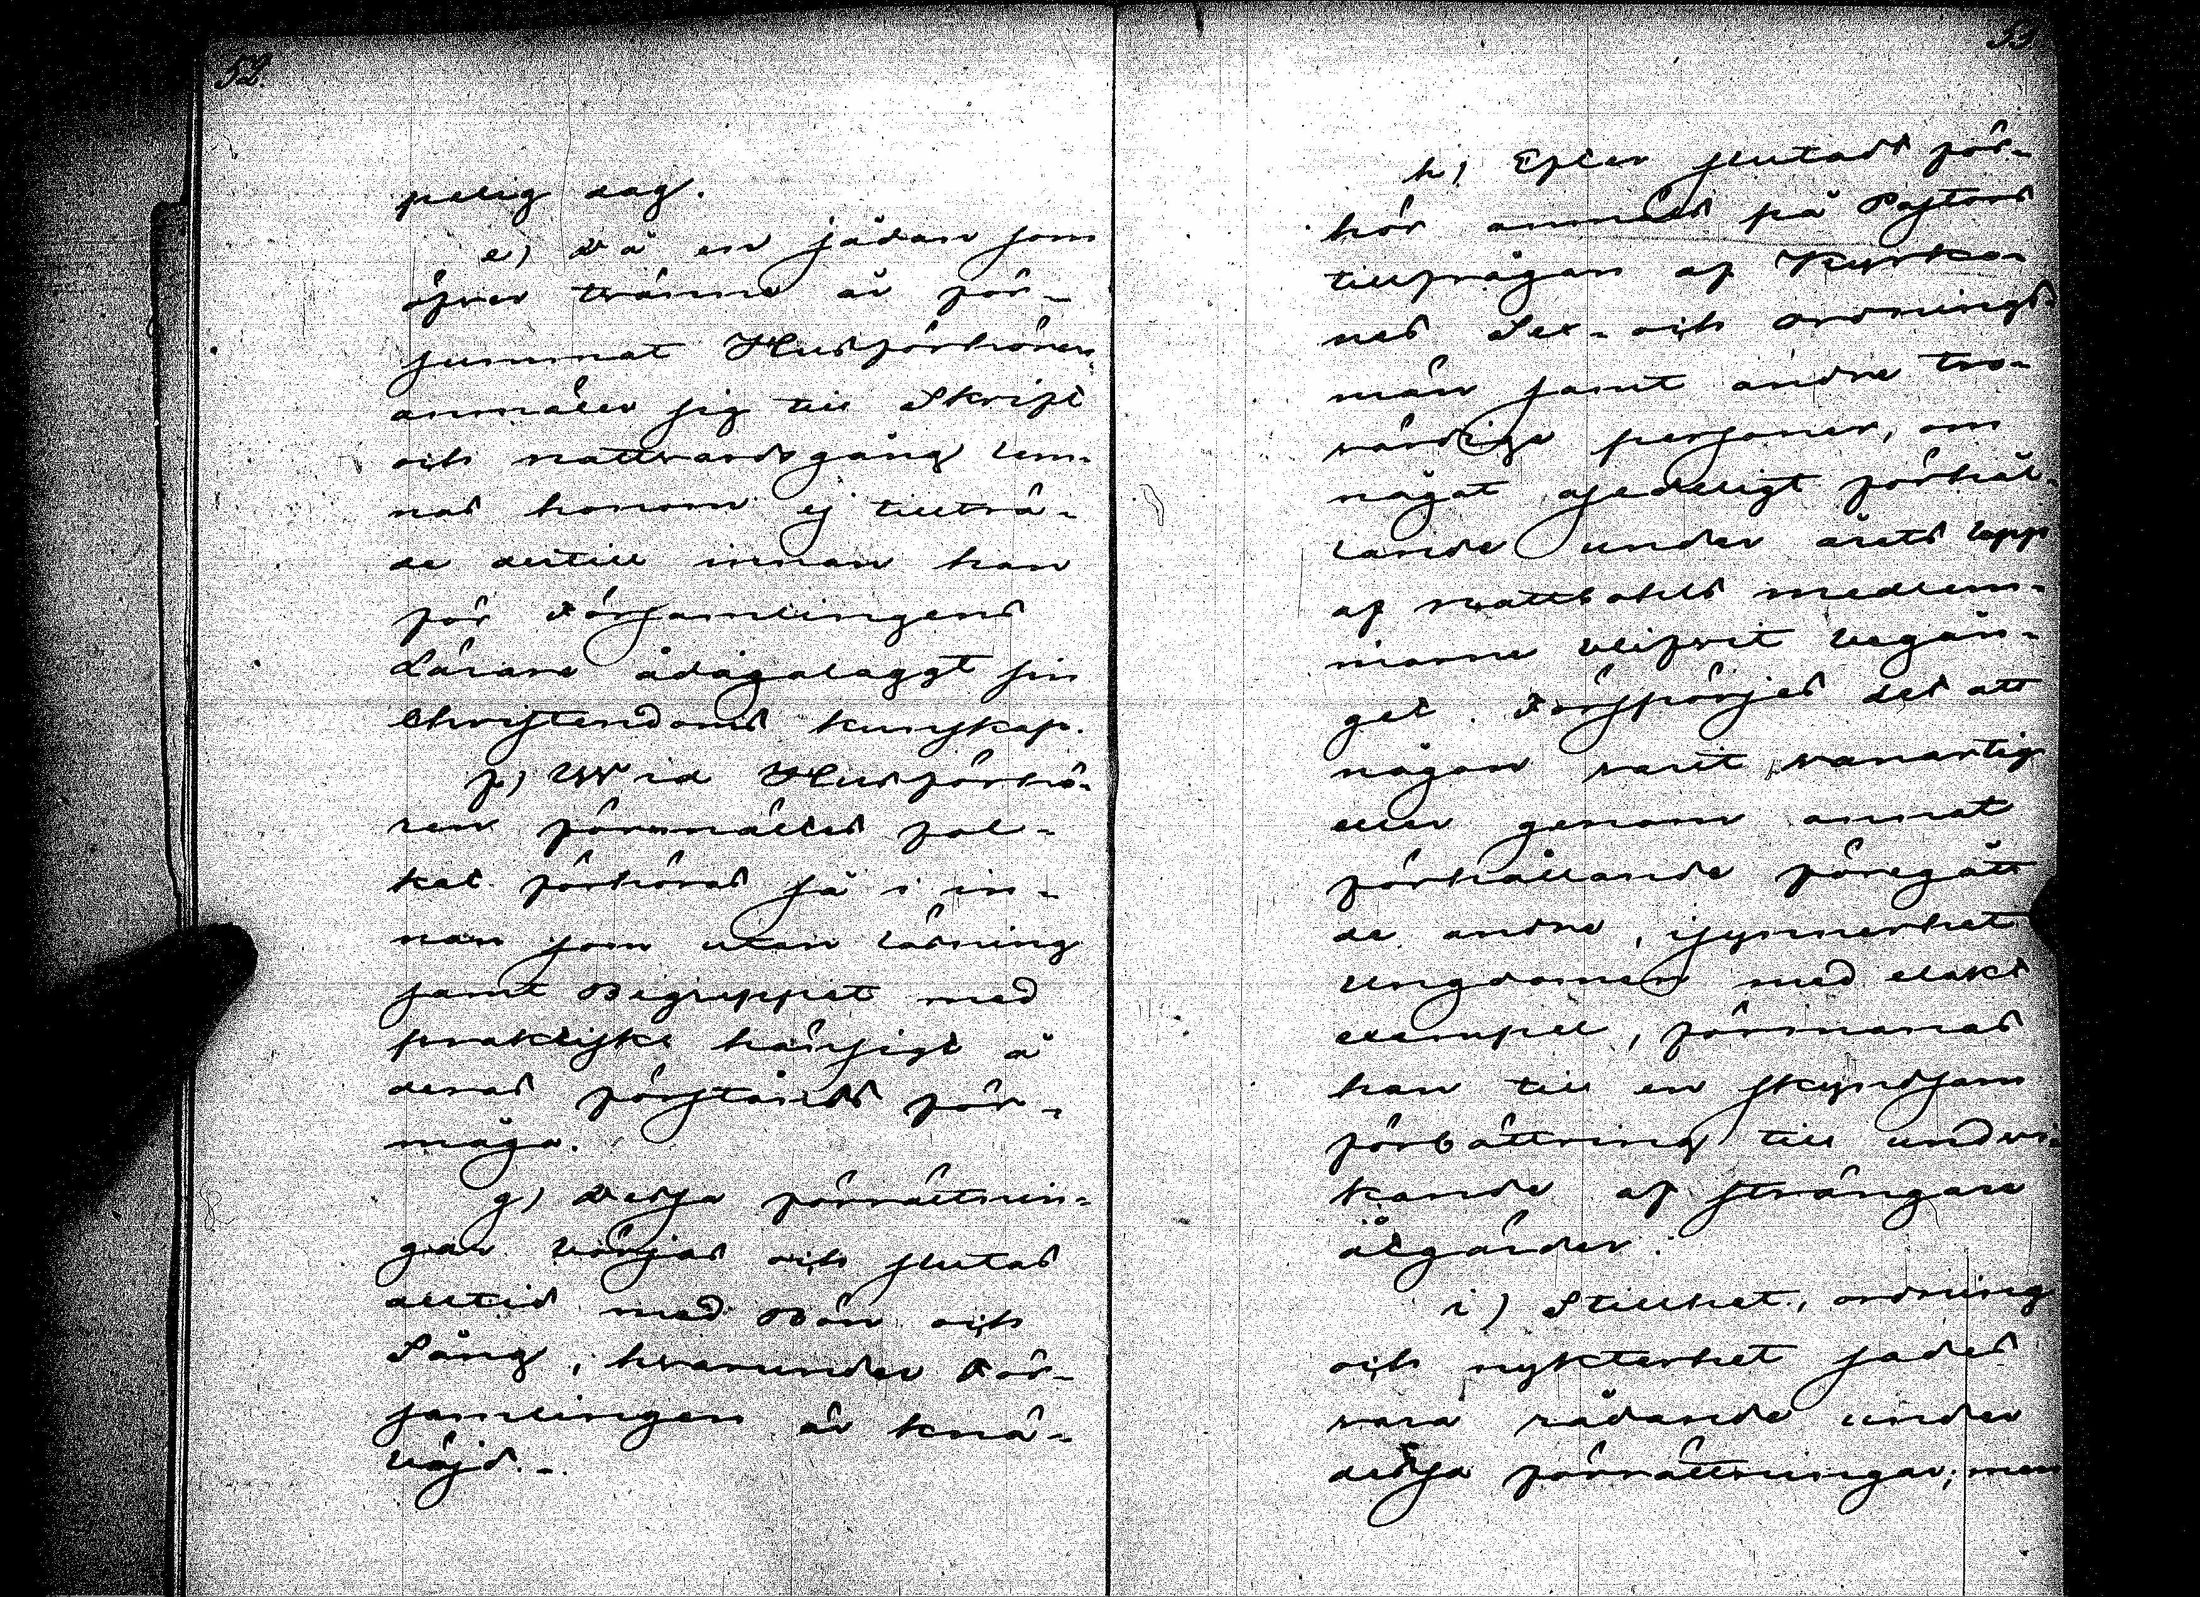 52.
pelig dag.
e) Då en sådan som
öfver tvänne år för-
summat Husförhören
anmäler sig till Skrift
och nattvardsgång lem-
nas honom ej tillträ-
de dertill innan han
för Församlingens
Lärare ådagalaggt sin
Christendoms kunskap.
f) Wid Husförhö-
ren förmåldes fol-
ket förhöras så i in-
nan som utan läsning
samt Begreppet med
praktiskt hänsigt å
deras förstånds för-
måga.
g) Dessa förrättnin-
gar börjas och slutas
alltid med Bön och
Sång, hvarunder För-
samlingen är knä-
böjd.-
53.
h) Efter slutadt för-
hör anmäles på Pastors
tillfrågan af Kyrko-
nes Sex- och ordnings-
män samt andre tro-
värdige personer, om
något osedeligt förhål-
lande under årets lopp
af Mattlahls medlem-
marne blifvit begån-
get. Försspörjes det att
någon varit vanartig
eller genom annat
förhållande föregått
de andre, isynnerhet
ungdomen med elakt
exempel, förmanas
han till en skyndsam
förbättring till undvi-
kande af strängare
åtgärder.
i) Stillhet, ordning
och nykterhet sades
vara rådande under
dessa förrättningar; men